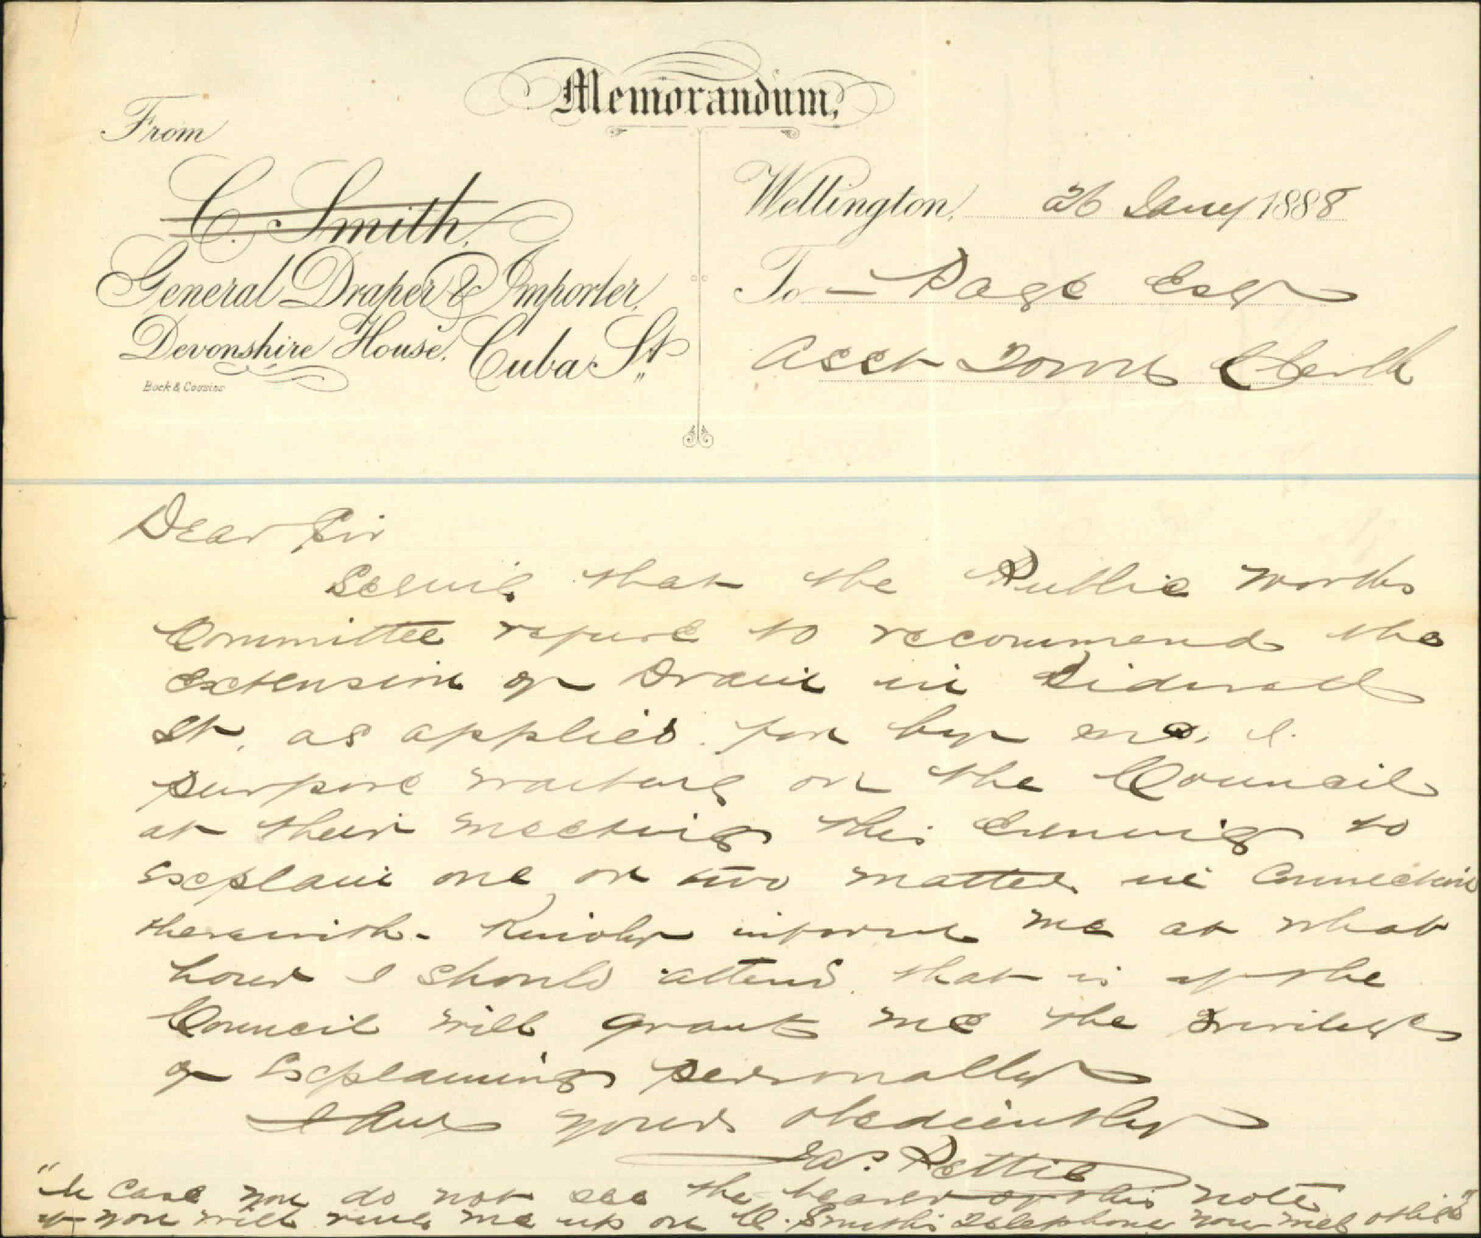 Memorandum,
From
C. Smith,
General Draper & Importer,
Devonshire House, Cuba St.
Bock & Cousins
Wellington, 26 Jany 1888
To — Page Esqr
Asst Town Clerk
Dear Sir
Seeing that the Public Works
Committee refuse to recommend the
extension of Drain in Sidwell
St. as applied for by me, I
purpose waiting on the Council
at their meeting this Evening to
explain one or two matters in Connection
therewith - Kindly inform me at what
hour I should attend that is if the
Council will grant me the privilege
of Explaining personally
I Am yours obediently
Jas. Pettie
"In case you do not see the bearer of this note
if you will ring me up on C. Smith's Telephone you will oblige"